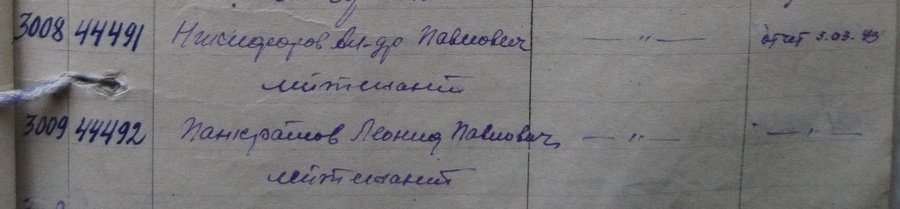 3008 44491 Никифоров Ал-др Павлович — " — отчет 3.03.43
лейтенант
3009 44492 Панкратов Леонид Павлович — " — — " —
лейтенант